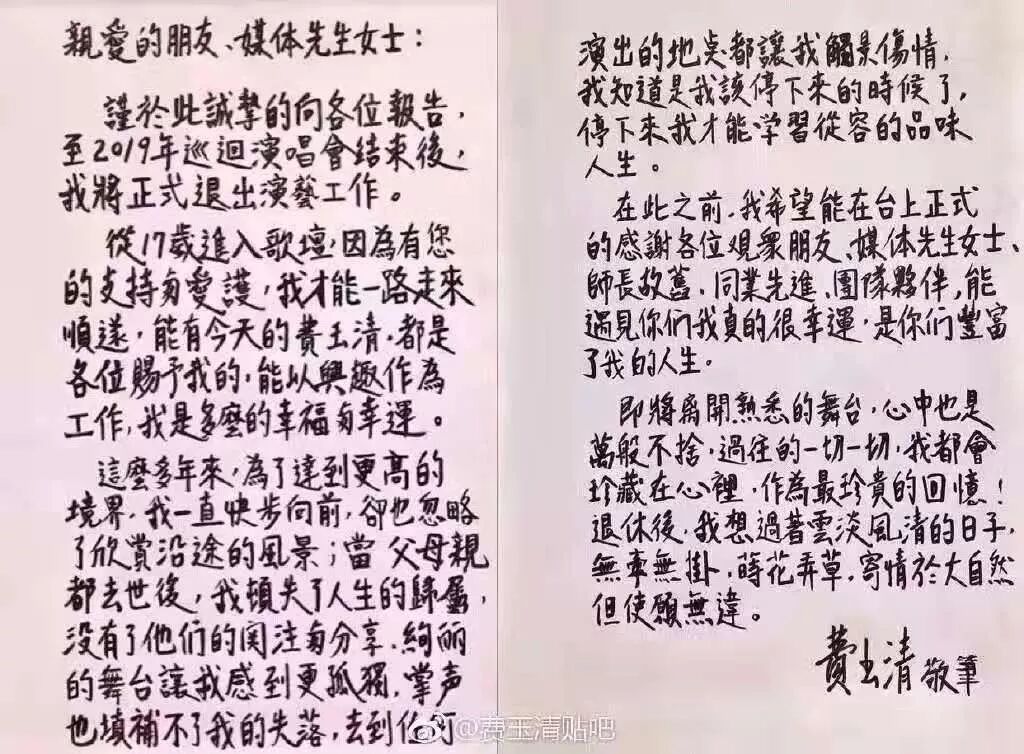 親愛的朋友、媒体先生女士：
謹於此誠摯的向各位報告，
至2019年巡迴演唱會結束後，
我將正式退出演藝工作。
從17歲進入歌壇，因為有您
的支持與愛護，我才能一路走來
順遂，能有今天的費玉清，都是
各位賜予我的，能以興趣作為
工作，我是多麼的幸福與幸運。
這麼多年來，為了達到更高的
境界，我一直快步向前，卻也忽略
了欣賞沿途的風景；當父母親
都去世後，我頓失了人生的歸屬，
沒有了他們的関注與分享，絢麗
的舞台讓我感到更孤獨，掌声
也填補不了我的失落，去到任何
演出的地点都讓我觸景傷情，
我知道是我該停下來的時候了，
停下來我才能学習從容的品味
人生。
在此之前，我希望能在台上正式
的感謝各位观眾朋友、媒体先生女士、
師長故舊、同業先進、團隊夥伴，能
遇見你們我真的很幸運，是你們豐富
了我的人生。
即將离開熟悉的舞台，心中也是
萬般不捨，過往的一切一切，我都會
珍藏在心裡，作為最珍貴的回憶！
退休後，我想過著雲淡風清的日子，
無牽無掛，蒔花弄草，寄情於大自然
但使願無違。
費玉清 敬筆
@费玉清贴吧